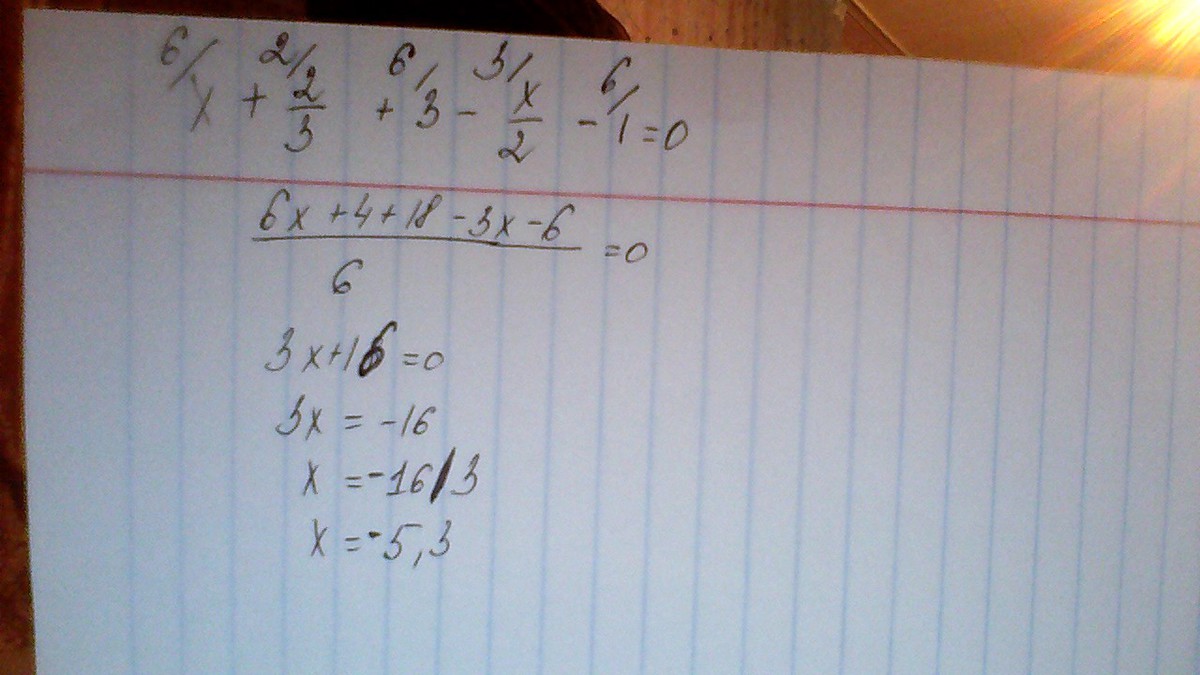 6/ 2/ 6/ 3/ 6/
x + 2/3 + 3 - x/2 - 1 = 0
6x + 4 + 18 - 3x - 6
6
= 0
3x + 16 = 0
3x = -16
x = -16/3
x = -5,3